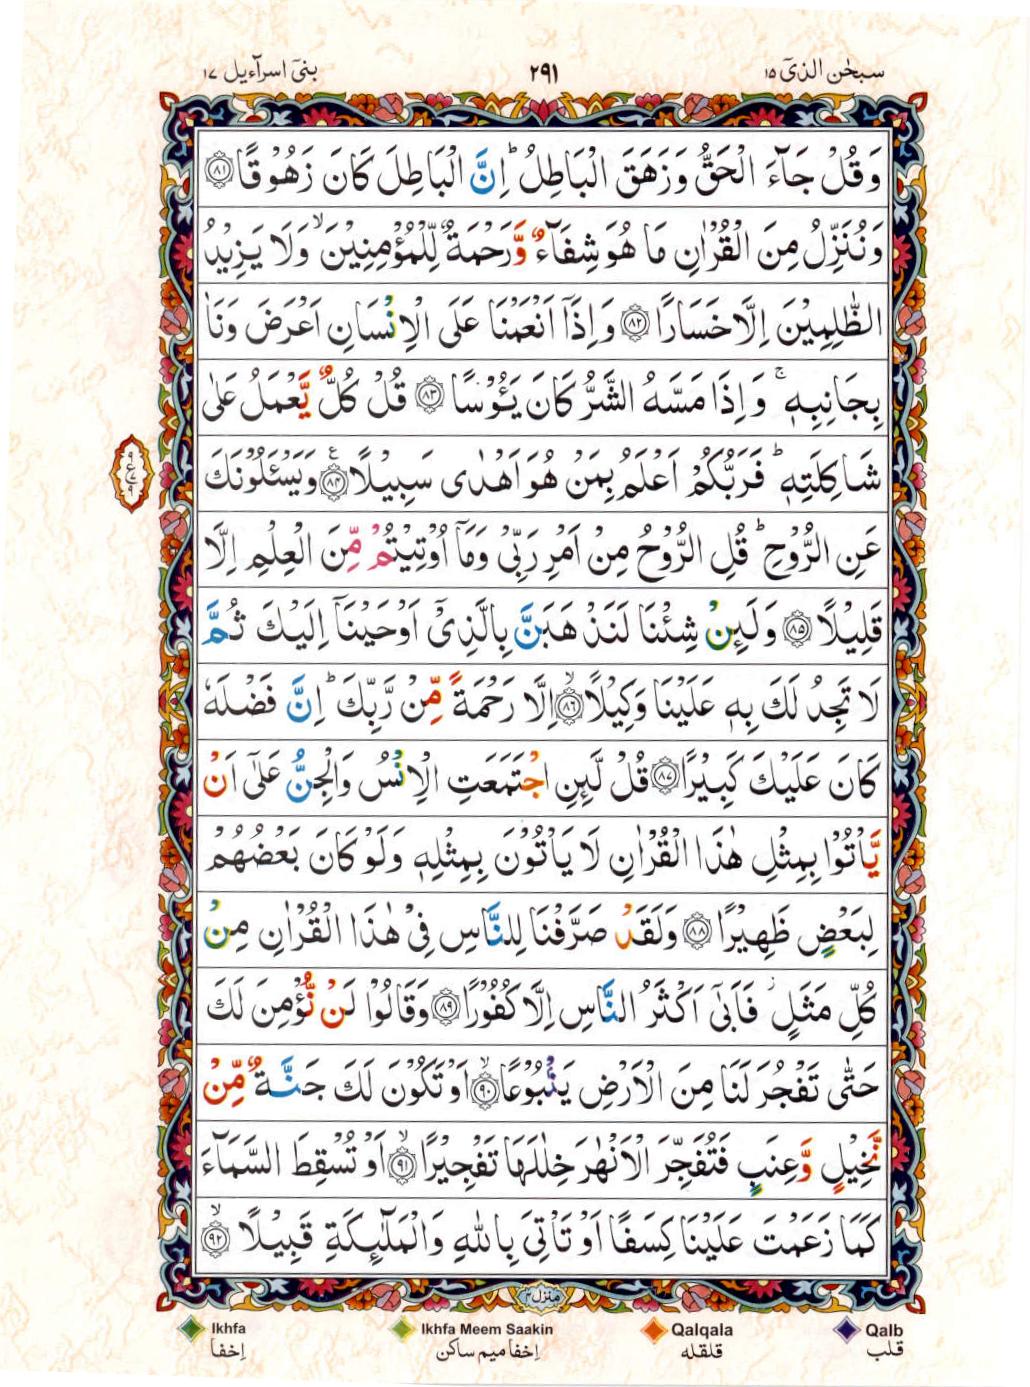 سبحٰن الذیۤ ۱۵
۲۹۱
بنیۤ اسرآءیل ۱۷
وَقُلْ جَآءَ الْحَقُّ وَزَهَقَ الْبَاطِلُ ؕ اِنَّ الْبَاطِلَ كَانَ زَهُوْقًا ﴿۸۱﴾
وَنُنَزِّلُ مِنَ الْقُرْاٰنِ مَا هُوَ شِفَآءٌ وَّرَحْمَةٌ لِّلْمُؤْمِنِيْنَ ۙ وَلَا يَزِيْدُ
الظّٰلِمِيْنَ اِلَّا خَسَارًا ﴿۸۲﴾ وَاِذَآ اَنْعَمْنَا عَلَى الْاِنْسَانِ اَعْرَضَ وَنَاٰ
بِجَانِبِهٖ ۚ وَاِذَا مَسَّهُ الشَّرُّ كَانَ يَـُٔوْسًا ﴿۸۳﴾ قُلْ كُلٌّ يَّعْمَلُ عَلٰى
شَاكِلَتِهٖ ؕ فَرَبُّكُمْ اَعْلَمُ بِمَنْ هُوَ اَهْدٰى سَبِيْلًا ﴿۸۴﴾ ع وَيَسْـَٔلُوْنَكَ
عَنِ الرُّوْحِ ؕ قُلِ الرُّوْحُ مِنْ اَمْرِ رَبِّىْ وَمَآ اُوْتِيْتُمْ مِّنَ الْعِلْمِ اِلَّا
قَلِيْلًا ﴿۸۵﴾ وَلَئِنْ شِئْنَا لَنَذْهَبَنَّ بِالَّذِىْٓ اَوْحَيْنَآ اِلَيْكَ ثُمَّ
لَا تَجِدُ لَكَ بِهٖ عَلَيْنَا وَكِيْلًا ﴿۸۶﴾ ۙ اِلَّا رَحْمَةً مِّنْ رَّبِّكَ ؕ اِنَّ فَضْلَهٗ
كَانَ عَلَيْكَ كَبِيْرًا ﴿۸۷﴾ قُلْ لَّئِنِ اجْتَمَعَتِ الْاِنْسُ وَالْجِنُّ عَلٰٓى اَنْ
يَّاْتُوْا بِمِثْلِ هٰذَا الْقُرْاٰنِ لَا يَاْتُوْنَ بِمِثْلِهٖ وَلَوْ كَانَ بَعْضُهُمْ
لِبَعْضٍ ظَهِيْرًا ﴿۸۸﴾ وَلَقَدْ صَرَّفْنَا لِلنَّاسِ فِىْ هٰذَا الْقُرْاٰنِ مِنْ
كُلِّ مَثَلٍ ؗ فَاَبٰٓى اَكْثَرُ النَّاسِ اِلَّا كُفُوْرًا ﴿۸۹﴾ وَقَالُوْا لَنْ نُّؤْمِنَ لَكَ
حَتّٰى تَفْجُرَ لَنَا مِنَ الْاَرْضِ يَنْۢبُوْعًا ﴿۹۰﴾ ۙ اَوْ تَكُوْنَ لَكَ جَنَّةٌ مِّنْ
نَّخِيْلٍ وَّعِنَبٍ فَتُفَجِّرَ الْاَنْهٰرَ خِلٰلَهَا تَفْجِيْرًا ﴿۹۱﴾ ۙ اَوْ تُسْقِطَ السَّمَآءَ
كَمَا زَعَمْتَ عَلَيْنَا كِسَفًا اَوْ تَاْتِىَ بِاللّٰهِ وَالْمَلٰٓئِكَةِ قَبِيْلًا ﴿۹۲﴾ ۙ
منزل ۴
Ikhfa Ikhfa Meem Saakin Qalqala Qalb
اِخفا اِخفا میم ساکن قلقله قلب